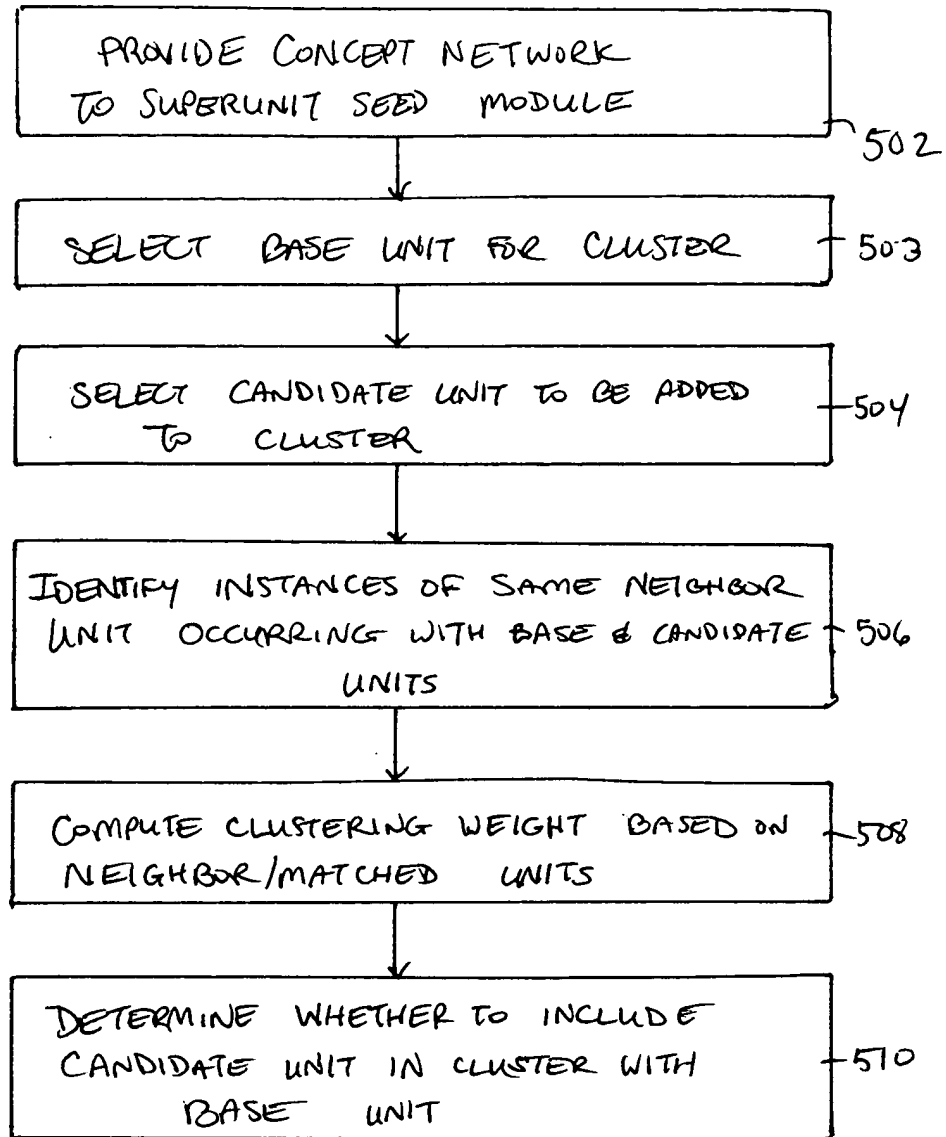 PROVIDE CONCEPT NETWORK
TO SUPERUNIT SEED MODULE
502
SELECT BASE UNIT FOR CLUSTER
503
SELECT CANDIDATE UNIT TO BE ADDED
TO CLUSTER
504
IDENTIFY INSTANCES OF SAME NEIGHBOR
UNIT OCCURRING WITH BASE & CANDIDATE
UNITS
506
COMPUTE CLUSTERING WEIGHT BASED ON
NEIGHBOR/MATCHED UNITS
508
DETERMINE WHETHER TO INCLUDE
CANDIDATE UNIT IN CLUSTER WITH
BASE UNIT
510